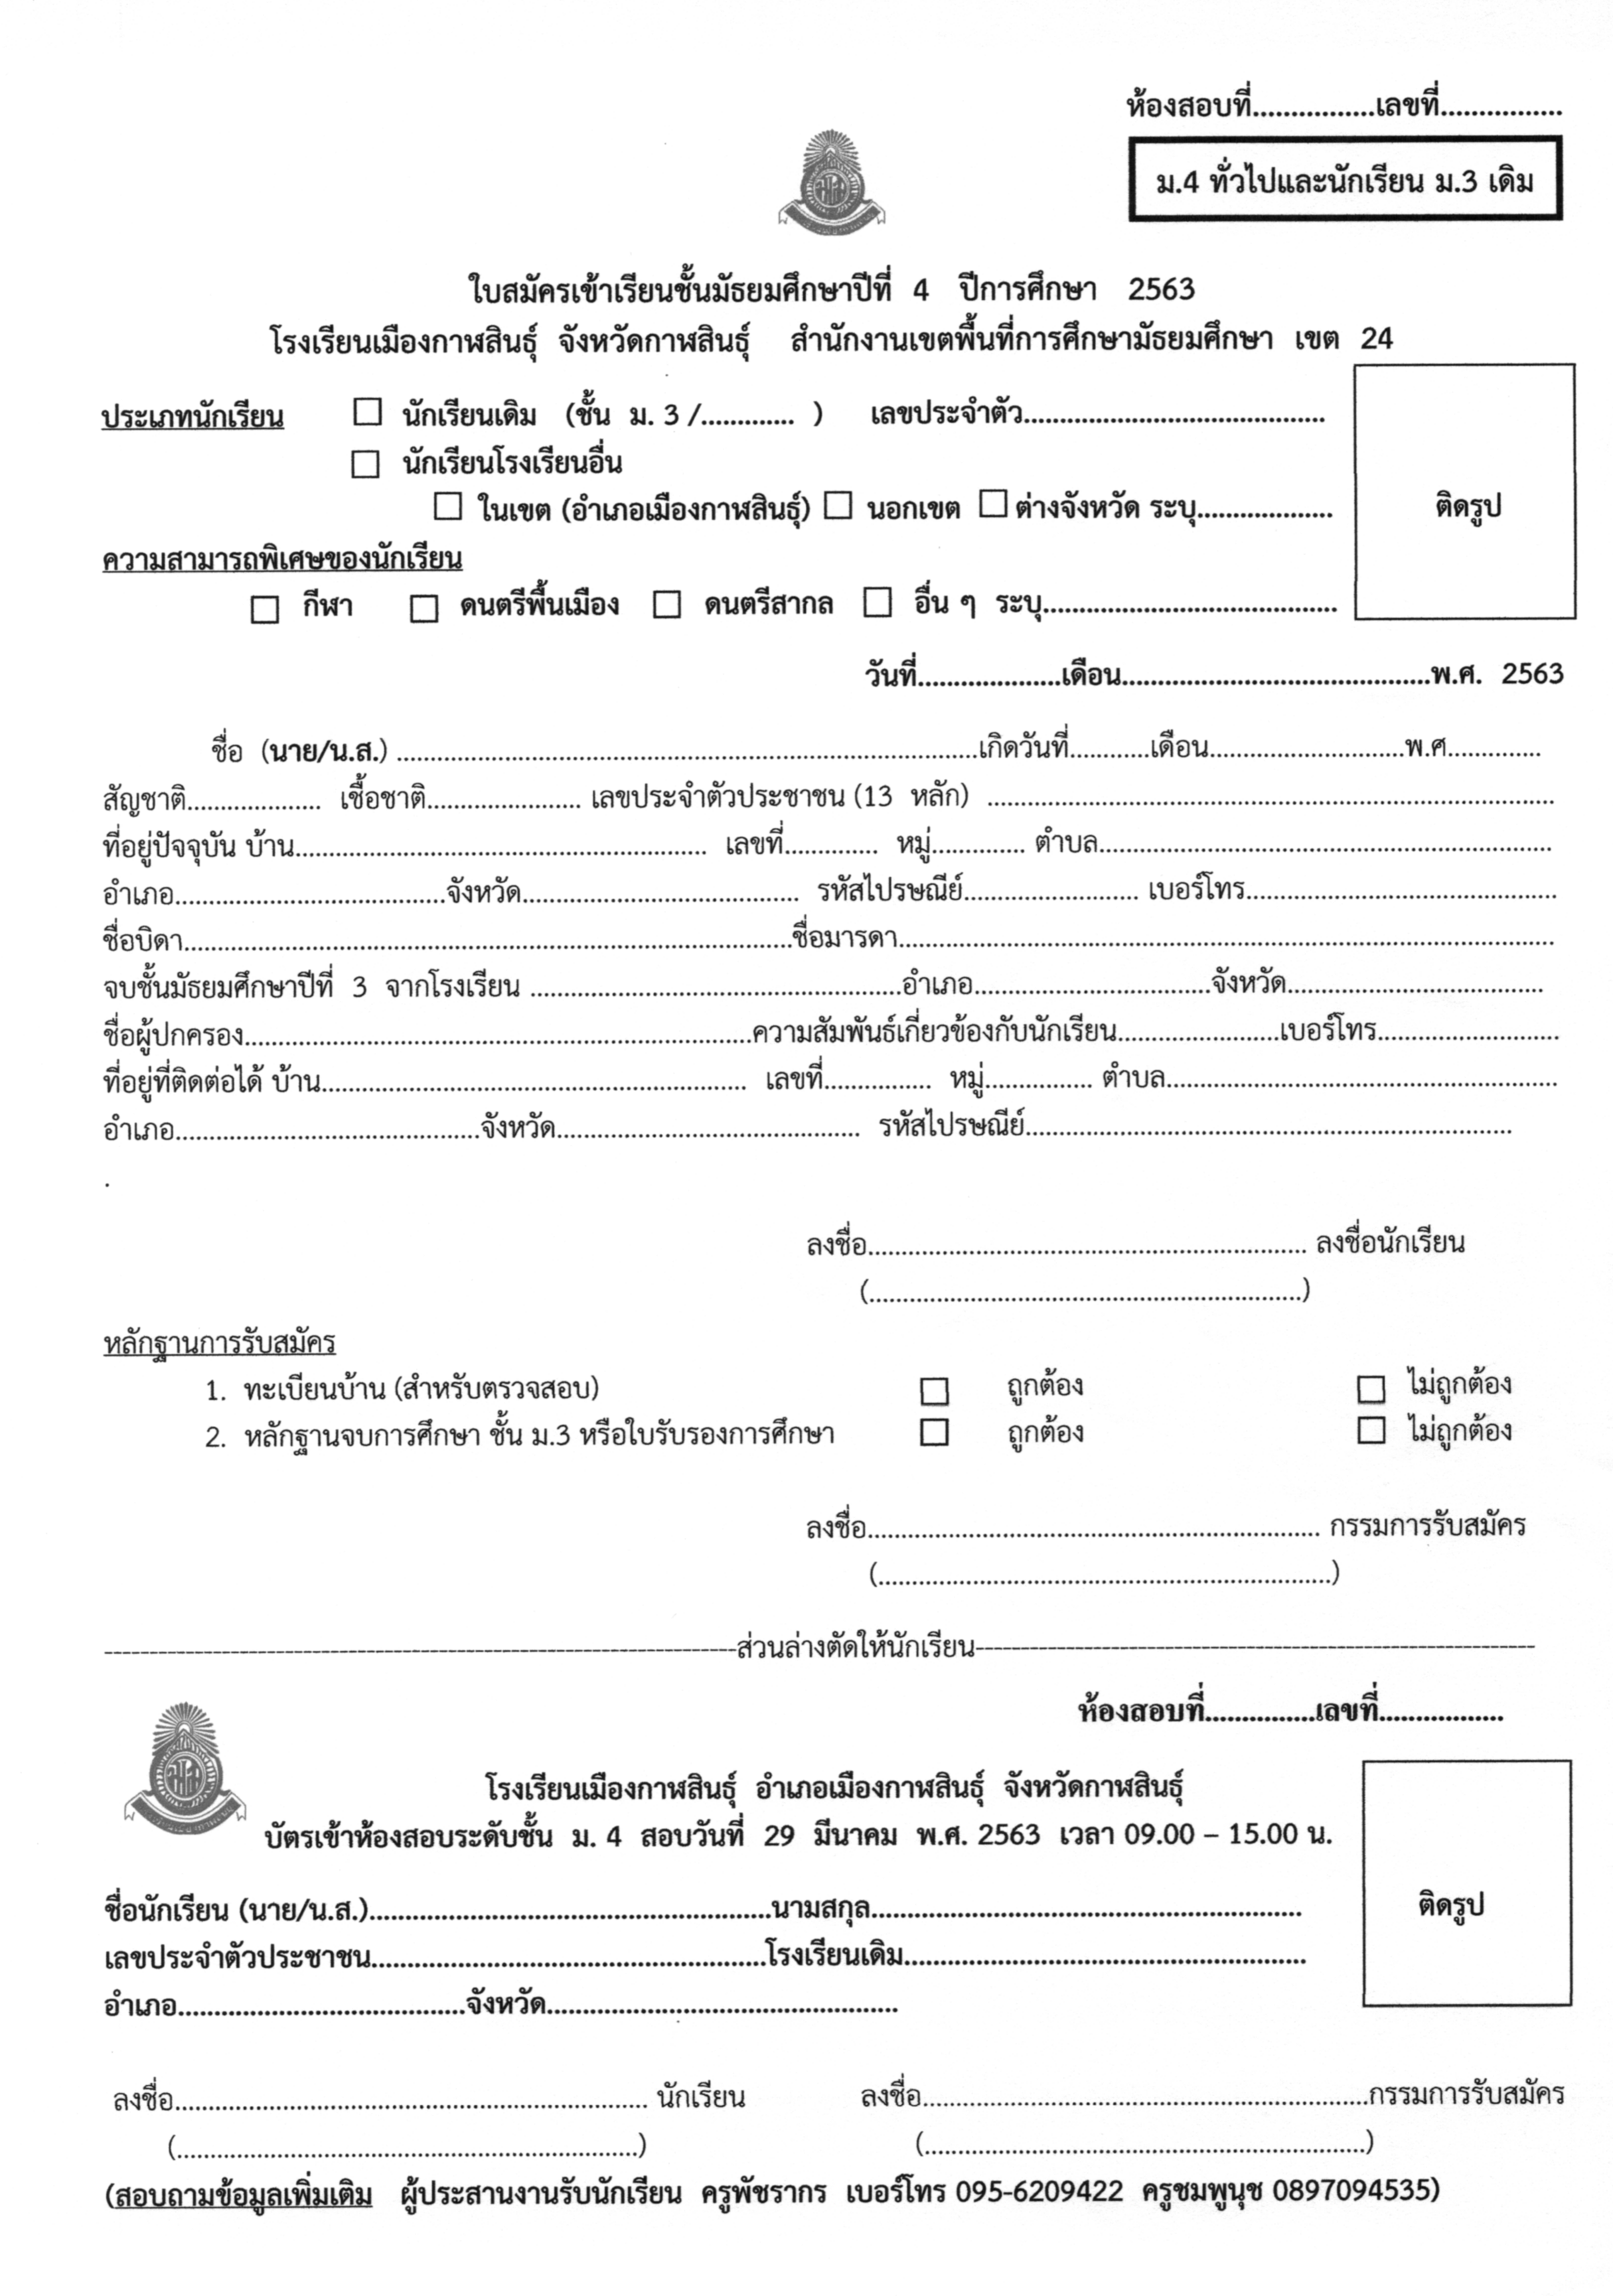 ห้องสอบที่.................เลขที่.................
ม.4 ทั่วไปและนักเรียน ม.3 เดิม
ใบสมัครเข้าเรียนชั้นมัธยมศึกษาปีที่ 4 ปีการศึกษา 2563
โรงเรียนเมืองกาฬสินธุ์ จังหวัดกาฬสินธุ์ สำนักงานเขตพื้นที่การศึกษามัธยมศึกษา เขต 24
ประเภทนักเรียน ☐ นักเรียนเดิม (ชั้น ม. 3 /............. ) เลขประจำตัว..........................................
☐ นักเรียนโรงเรียนอื่น
☐ ในเขต (อำเภอเมืองกาฬสินธุ์) ☐ นอกเขต ☐ ต่างจังหวัด ระบุ...................
ติดรูป
ความสามารถพิเศษของนักเรียน
☐ กีฬา ☐ ดนตรีพื้นเมือง ☐ ดนตรีสากล ☐ อื่น ๆ ระบุ.........................................
วันที่....................เดือน...........................................พ.ศ. 2563
ชื่อ (นาย/น.ส.) ......................................................................................เกิดวันที่............เดือน.............................พ.ศ..............
สัญชาติ.................... เชื้อชาติ....................... เลขประจำตัวประชาชน (13 หลัก) ....................................................................................
ที่อยู่ปัจจุบัน บ้าน............................................................. เลขที่.............. หมู่.............. ตำบล...................................................................
อำเภอ........................................จังหวัด......................................... รหัสไปรษณีย์.......................... เบอร์โทร..............................................
ชื่อบิดา..........................................................................................ชื่อมารดา.................................................................................................
จบชั้นมัธยมศึกษาปีที่ 3 จากโรงเรียน .......................................................อำเภอ...................................จังหวัด......................................
ชื่อผู้ปกครอง...........................................................................ความสัมพันธ์เกี่ยวข้องกับนักเรียน........................เบอร์โทร...........................
ที่อยู่ที่ติดต่อได้ บ้าน............................................................... เลขที่................ หมู่................ ตำบล..........................................................
อำเภอ.............................................จังหวัด............................................. รหัสไปรษณีย์........................................................................
.
ลงชื่อ................................................................. ลงชื่อนักเรียน
(................................................................)
หลักฐานการรับสมัคร
1. ทะเบียนบ้าน (สำหรับตรวจสอบ) ☐ ถูกต้อง ☐ ไม่ถูกต้อง
2. หลักฐานจบการศึกษา ชั้น ม.3 หรือใบรับรองการศึกษา ☐ ถูกต้อง ☐ ไม่ถูกต้อง
ลงชื่อ................................................................... กรรมการรับสมัคร
(...................................................................)
------------------------------------------------------------------------ส่วนล่างตัดให้นักเรียน----------------------------------------------------------------
ห้องสอบที่................เลขที่.................
โรงเรียนเมืองกาฬสินธุ์ อำเภอเมืองกาฬสินธุ์ จังหวัดกาฬสินธุ์
บัตรเข้าห้องสอบระดับชั้น ม. 4 สอบวันที่ 29 มีนาคม พ.ศ. 2563 เวลา 09.00 – 15.00 น.
ติดรูป
ชื่อนักเรียน (นาย/น.ส.)........................................................นามสกุล............................................................
เลขประจำตัวประชาชน.......................................................โรงเรียนเดิม........................................................
อำเภอ........................................จังหวัด.................................................
ลงชื่อ...................................................................... นักเรียน ลงชื่อ..................................................................กรรมการรับสมัคร
(....................................................................) (.................................................................)
(สอบถามข้อมูลเพิ่มเติม ผู้ประสานงานรับนักเรียน ครูพัชรากร เบอร์โทร 095-6209422 ครูชมพูนุช 0897094535)